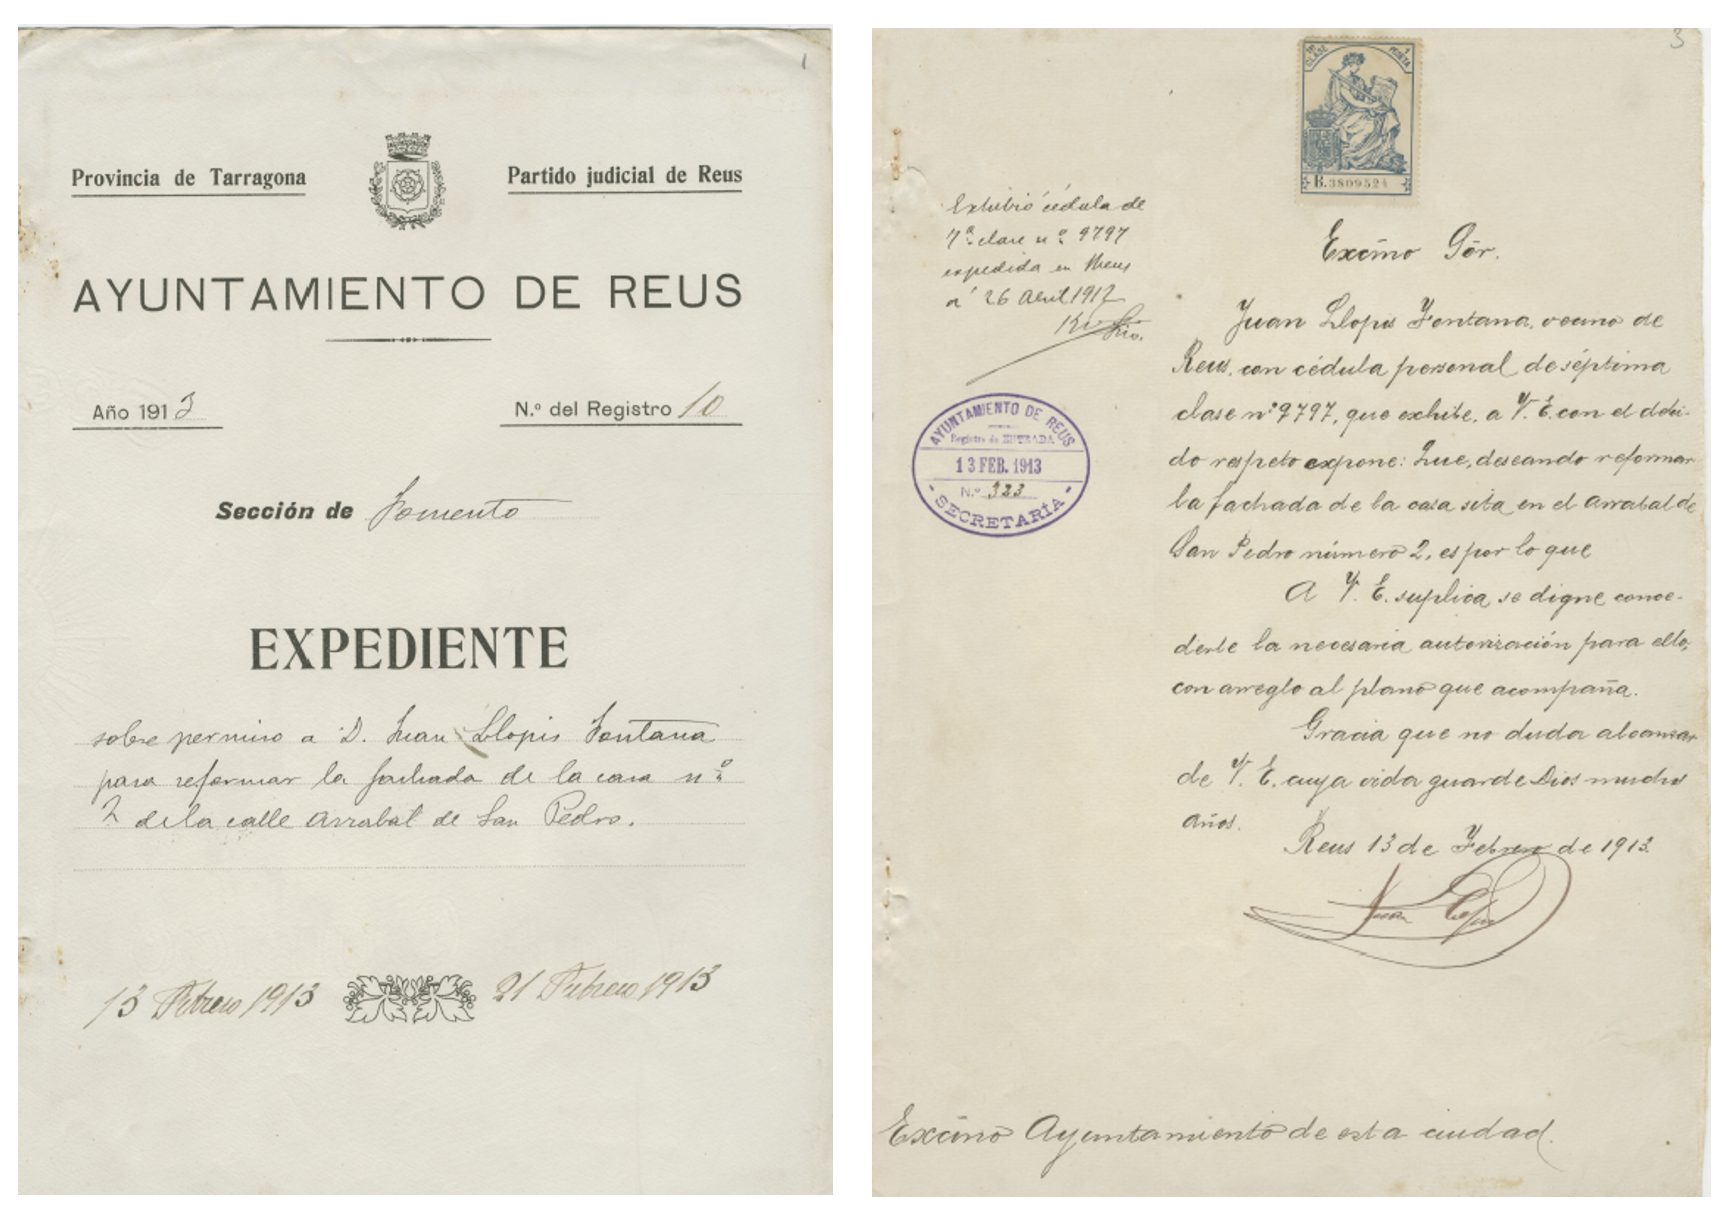 1
Provincia de Tarragona
Partido judicial de Reus
AYUNTAMIENTO DE REUS
Año 1913
N.º del Registro 10
Sección de Fomento
EXPEDIENTE
sobre permiso a D. Juan Llopis Fontana
para reformar la fachada de la casa nº
2 de la calle Arrabal de San Pedro.
13 Febrero 1913
21 Febrero 1913
3
CLASE 1 PESETA
B.3809524
Exhibió cédula de
7ª clase nº 9797
expedida en Reus
a 26 Abril 1912
AYUNTAMIENTO DE REUS
Registro de ENTRADA
13 FEB. 1913
N.º 323
SECRETARÍA
Excmo Sór.
Juan Llopis Fontana, vecino de
Reus, con cédula personal de séptima
clase nº 9797, que exhibe, a V. E. con el debi-
do respeto expone: Que, deseando reformar
la fachada de la casa sita en el arrabal de
San Pedro número 2, es por lo que
A V. E. suplica se digne conce-
derle la necesaria autorización para ello,
con arreglo al plano que acompaña.
Gracia que no duda alcanzar
de V. E. cuya vida guarde Dios muchos
años.
Reus 13 de Febrero de 1913.
Juan Llopis
Excmo Ayuntamiento de esta ciudad.